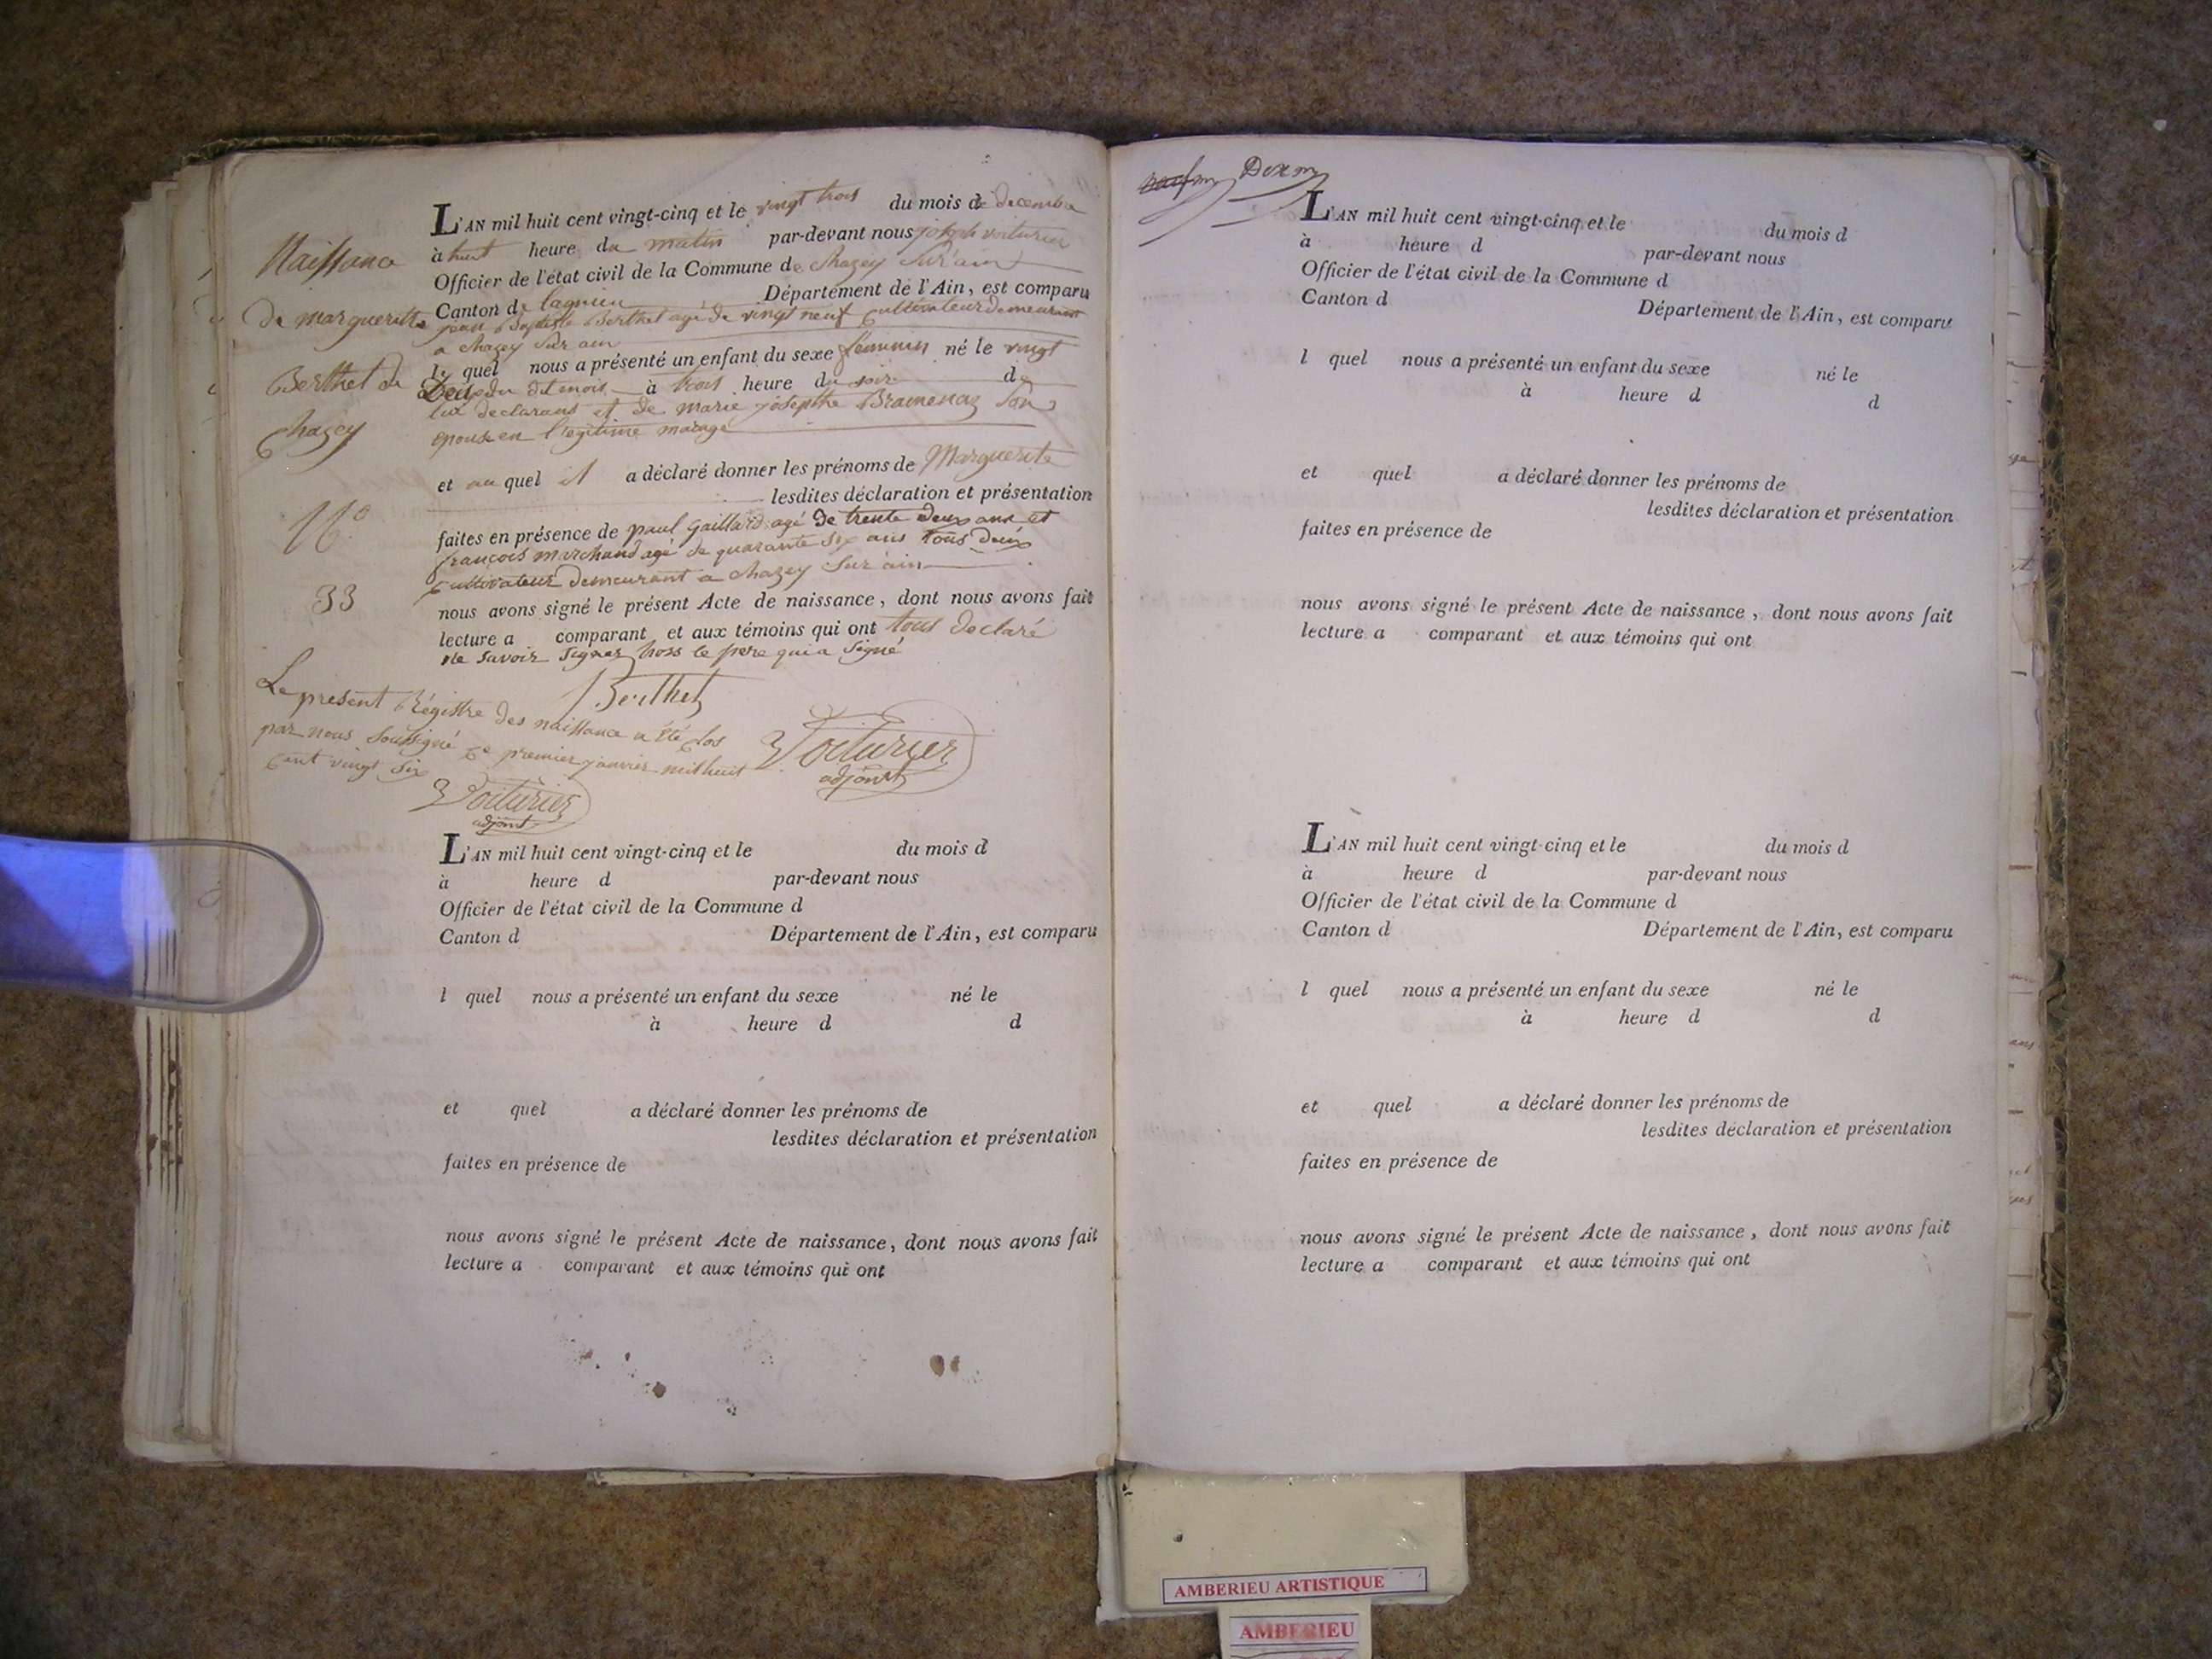 Naissance
de marguerite
Berthet de
Chazey
N.º
33
L'AN mil huit cent vingt-cinq et le vingt trois du mois de decembre
à huit heure du matin par-devant nous joseph voiturier
Officier de l'état civil de la Commune de Chazey Sur ain
Canton de lagnieu Département de l'Ain, est comparu
jean Baptiste Berthet agé de vingt neuf Cultivateur demeurant
a chazey sur ain
le quel nous a présenté un enfant du sexe feminin né le vingt
Deux du dit mois à trois heure du soir de
lui declarans et de marie josepthe Bramenaz Son
epouse en l'egitime mariage
et au quel il a déclaré donner les prénoms de Marguerite
lesdites déclaration et présentation
faites en présence de paul Gaillard agé de trente deux ans et
francois marchand agé de quarante six ans tous deux
Cultivateur demeurant a chazey Sur ain
nous avons signé le présent Acte de naissance, dont nous avons fait
lecture a comparant et aux témoins qui ont tous declaré
ne savoir signer hors le pere qui a Signé
Berthet
Voiturier
adjoint
Le present Régistre des naissance a été clos
par nous Soussigné Ce premier janvier mil huit
Cent vingt Six
Voiturier
adjoint
L'AN mil huit cent vingt-cinq et le du mois d
à heure d par-devant nous
Officier de l'état civil de la Commune d
Canton d Département de l'Ain, est comparu
l quel nous a présenté un enfant du sexe né le
à heure d d
et quel a déclaré donner les prénoms de
lesdites déclaration et présentation
faites en présence de
nous avons signé le présent Acte de naissance, dont nous avons fait
lecture a comparant et aux témoins qui ont
L'AN mil huit cent vingt-cinq et le du mois d
à heure d par-devant nous
Officier de l'état civil de la Commune d
Canton d Département de l'Ain, est comparu
l quel nous a présenté un enfant du sexe né le
à heure d d
et quel a déclaré donner les prénoms de
lesdites déclaration et présentation
faites en présence de
nous avons signé le présent Acte de naissance, dont nous avons fait
lecture a comparant et aux témoins qui ont
L'AN mil huit cent vingt-cinq et le du mois d
à heure d par-devant nous
Officier de l'état civil de la Commune d
Canton d Département de l'Ain, est comparu
l quel nous a présenté un enfant du sexe né le
à heure d d
et quel a déclaré donner les prénoms de
lesdites déclaration et présentation
faites en présence de
nous avons signé le présent Acte de naissance, dont nous avons fait
lecture a comparant et aux témoins qui ont
AMBERIEU ARTISTIQUE
AMBERIEU